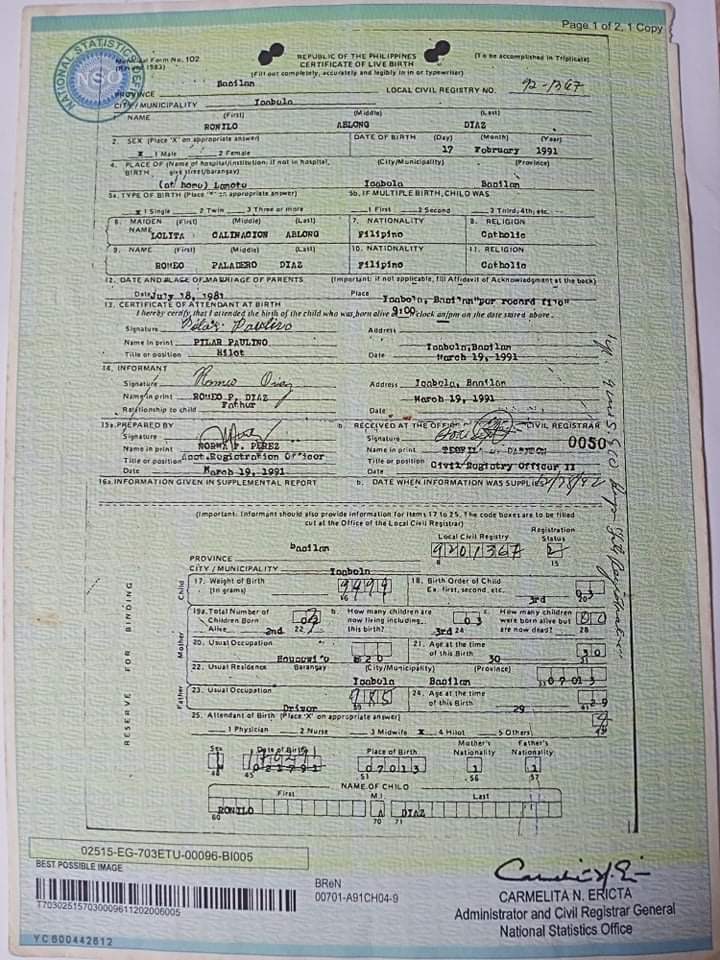 Page 1 of 2, 1 Copy
NATIONAL STATISTICS OFFICE
NSO
Municipal Form No. 102
REPUBLIC OF THE PHILIPPINES
CERTIFICATE OF LIVE BIRTH
(To be accomplished in Triplicate)
(Fill out completely, accurately and legibly in ink or typewriter)
PROVINCE Basilan
LOCAL CIVIL REGISTRY NO. 92-1367
CITY/MUNICIPALITY Isabela
NAME (First) (Middle) (Last)
RONILO ABLONG DIAZ
2. SEX (Place 'X' on appropriate answer)
X 1 Male 2 Female
DATE OF BIRTH (Day) (Month) (Year)
17 February 1991
4. PLACE OF BIRTH (Name of hospital/institution; if not in hospital, give street/barangay) (City/Municipality) (Province)
(at home) Isabela Basilan
5a. TYPE OF BIRTH (Place 'X' on appropriate answer)
5b. IF MULTIPLE BIRTH, CHILD WAS
X 1 Single 2 Twin 3 Three or more
1 First 2 Second 3 Third, 4th, etc.
6. MAIDEN NAME (First) (Middle) (Last)
LOLITA CALINACION ABLONG
7. NATIONALITY
Filipino
8. RELIGION
Catholic
9. NAME (First) (Middle) (Last)
ROMEO PALADERO DIAZ
10. NATIONALITY
Filipino
11. RELIGION
Catholic
12. DATE AND PLACE OF MARRIAGE OF PARENTS (Important: if not applicable, fill Affidavit of Acknowledgment at the back)
Date July 18, 1981 Place Isabela, Basilan "per record file"
13. CERTIFICATE OF ATTENDANT AT BIRTH
I hereby certify that I attended the birth of the child who was born alive 9:00 o'clock am/pm on the date stated above.
Signature Pilar Paulino
Address
Name in print PILAR PAULINO
Isabela, Basilan
Title or position Hilot
Date March 19, 1991
14. INFORMANT
Signature Romeo Diaz
Address Isabela, Basilan
Name in print ROMEO P. DIAZ
March 19, 1991
Relationship to child Father
Date
15a. PREPARED BY
b. RECEIVED AT THE OFFICE CIVIL REGISTRAR
Signature
Signature
0050
Name in print NORMA F. PEREZ
Name in print
Title or position Asst. Registration Officer
Title or position Civil Registry Officer II
Date March 19, 1991
Date
16a. INFORMATION GIVEN IN SUPPLEMENTAL REPORT
b. DATE WHEN INFORMATION WAS SUPPLIED
(Important: Informant should also provide information for items 17 to 25. The code boxes are to be filled out at the Office of the Local Civil Registrar)
Local Civil Registry
9201367
Registration Status
2
15
PROVINCE Basilan
CITY / MUNICIPALITY Isabela
RESERVE FOR BINDING
Child
17. Weight of Birth (in grams)
9999
18. Birth Order of Child
Ex. first, second, etc.
3rd
03
19a. Total Number of Children Born Alive
2nd
22
b. How many children are now living including this birth?
3rd 24
03
c. How many children were born alive but are now dead?
28
Mother
20. Usual Occupation
Housewife
21. Age at the time of this Birth
30
30
22. Usual Residence Barangay (City/Municipality) (Province)
Isabela Basilan
07013
Father
23. Usual Occupation
Driver
985
24. Age at the time of this Birth
29
29
25. Attendant of Birth (Place 'X' on appropriate answer)
1 Physician 2 Nurse 3 Midwife X 4 Hilot 5 Others
4
Sex
1
Date of Birth
45
Place of Birth
07013
51
Mother's Nationality
1
56
Father's Nationality
1
57
NAME OF CHILD
First M.I. Last
RONILO A DIAZ
60 70 71
02515-EG-703ETU-00096-BI005
BEST POSSIBLE IMAGE
T703025157030009611202006005
BReN
00701-A91CH04-9
CARMELITA N. ERICTA
Administrator and Civil Registrar General
National Statistics Office
YC600442612